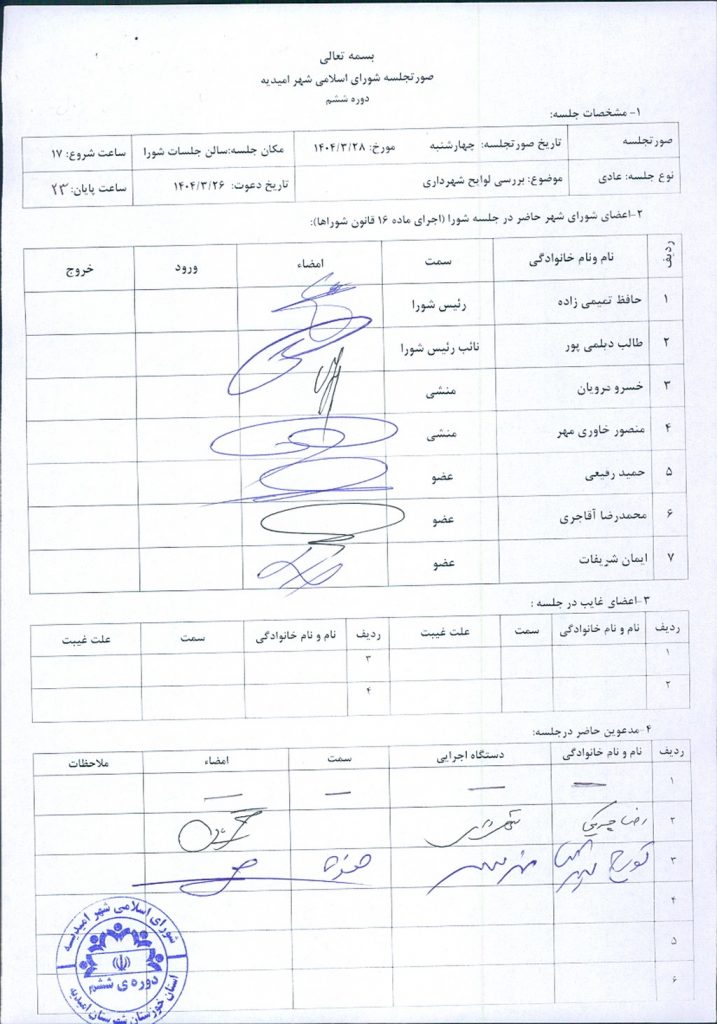 بسمه تعالی
صورتجلسه شورای اسلامی شهر امیدیه
دوره ششم
۱- مشخصات جلسه:
صورتجلسه تاریخ صورتجلسه: چهارشنبه مورخ: ۱۴۰۴/۳/۲۸ مکان جلسه:سالن جلسات شورا ساعت شروع: ۱۷
نوع جلسه: عادی موضوع: بررسی لوایح شهرداری تاریخ دعوت: ۱۴۰۴/۳/۲۶ ساعت پایان: ۲۳
۲-اعضای شورای شهر حاضر در جلسه شورا (اجرای ماده ۱۶ قانون شوراها):
ردیف نام ونام خانوادگی سمت امضاء ورود خروج
۱ حافظ تمیمی زاده رئیس شورا
۲ طالب دیلمی پور نائب رئیس شورا
۳ خسرو درویان منشی
۴ منصور خاوری مهر منشی
۵ حمید رفیعی عضو
۶ محمدرضا آقاجری عضو
۷ ایمان شریفات عضو
۳-اعضای غایب در جلسه :
ردیف نام و نام خانوادگی سمت علت غیبت ردیف نام و نام خانوادگی سمت علت غیبت
۱ ۳
۲ ۴
۴-مدعوین حاضر درجلسه:
ردیف نام و نام خانوادگی دستگاه اجرایی سمت امضاء ملاحظات
۱
۲ رضا
۳
۴
۵
۶
شورای اسلامی شهر امیدیه
دوره ی ششم
استان خوزستان شهرستان امیدیه